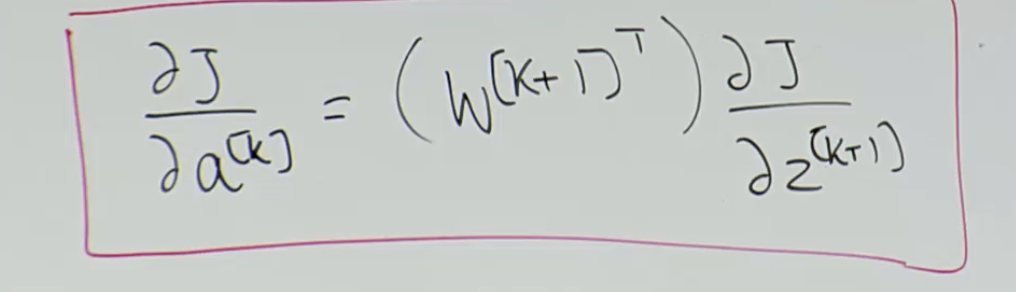 ∂J/∂a^[k] = (W^[k+1]^T) ∂J/∂z^[k+1]